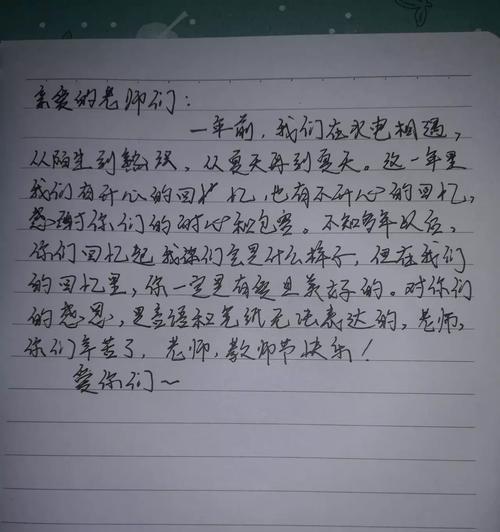 亲爱的老师们：
一年前，我们在水电相遇，
从陌生到熟识，从夏天再到夏天。这一年里
我们有开心的回忆，也有不开心的回忆，
感谢你们的耐心和包容。不知多年以后，
你们回忆起我们是什么样子，但在我们
的回忆里，你一定是有趣且美好的。对你们
的感恩，是言语和笔纸无法表达的，老师，
你们辛苦了，老师，教师节快乐！
爱你们～